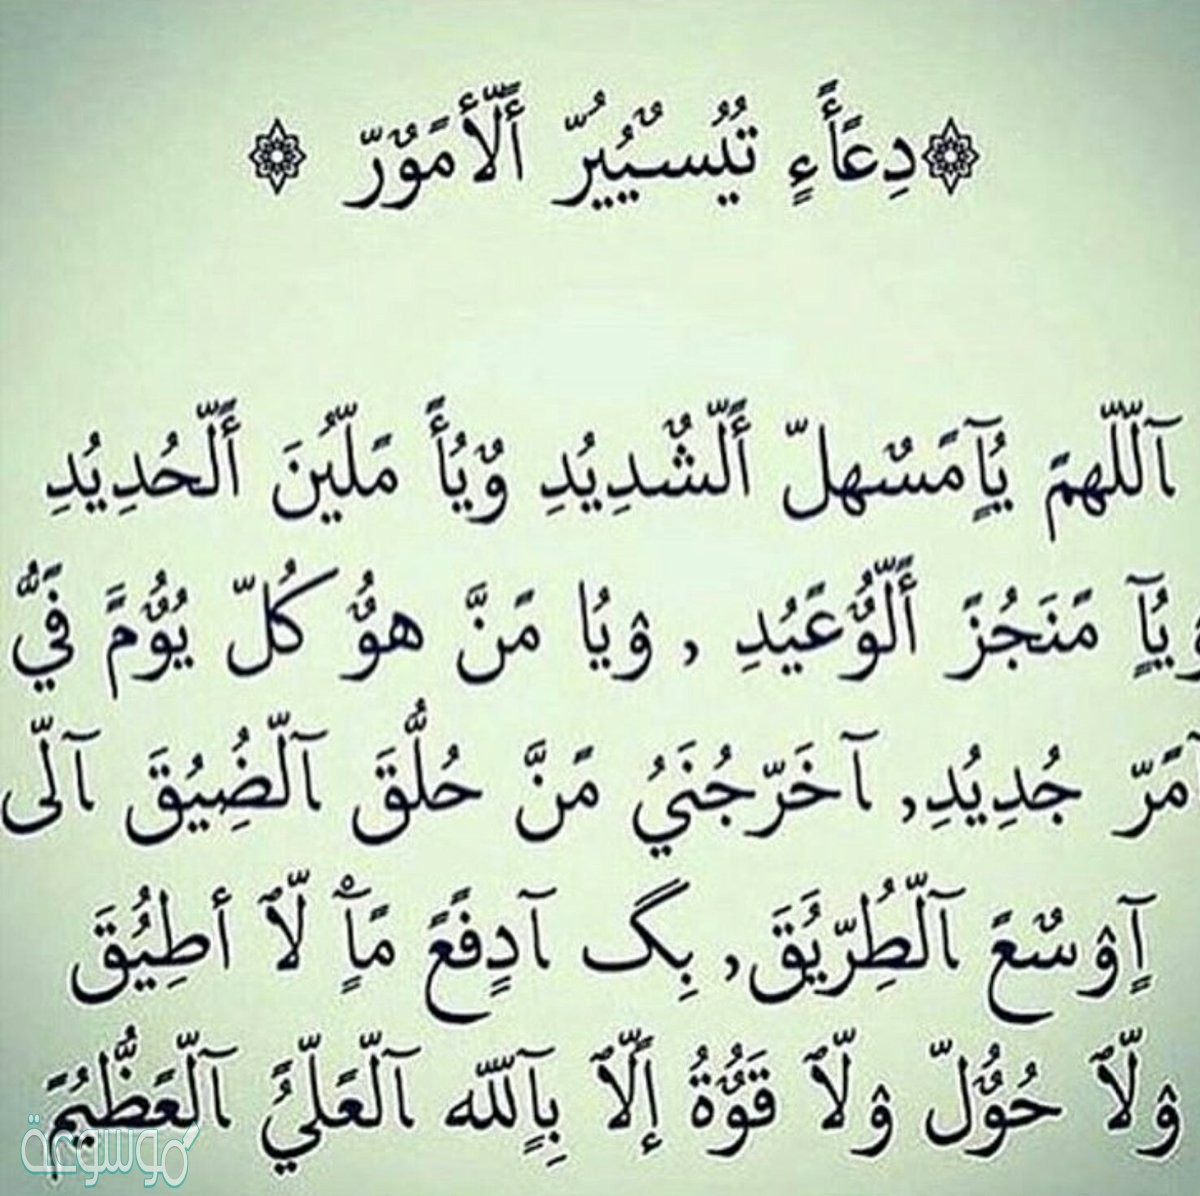 دعاء تيسيير الأمور
اللهم يامسهل الشديد ويا ملين الحديد
ويا منجز الوعيد , ويا من هو كل يوم في
امر جديد, اخرجني من حلق الضيق الى
اوسع الطريق, بك ادفع ما لا أطيق
ولا حول ولا قوة إلا بالله العلي العظيم
موسوعة